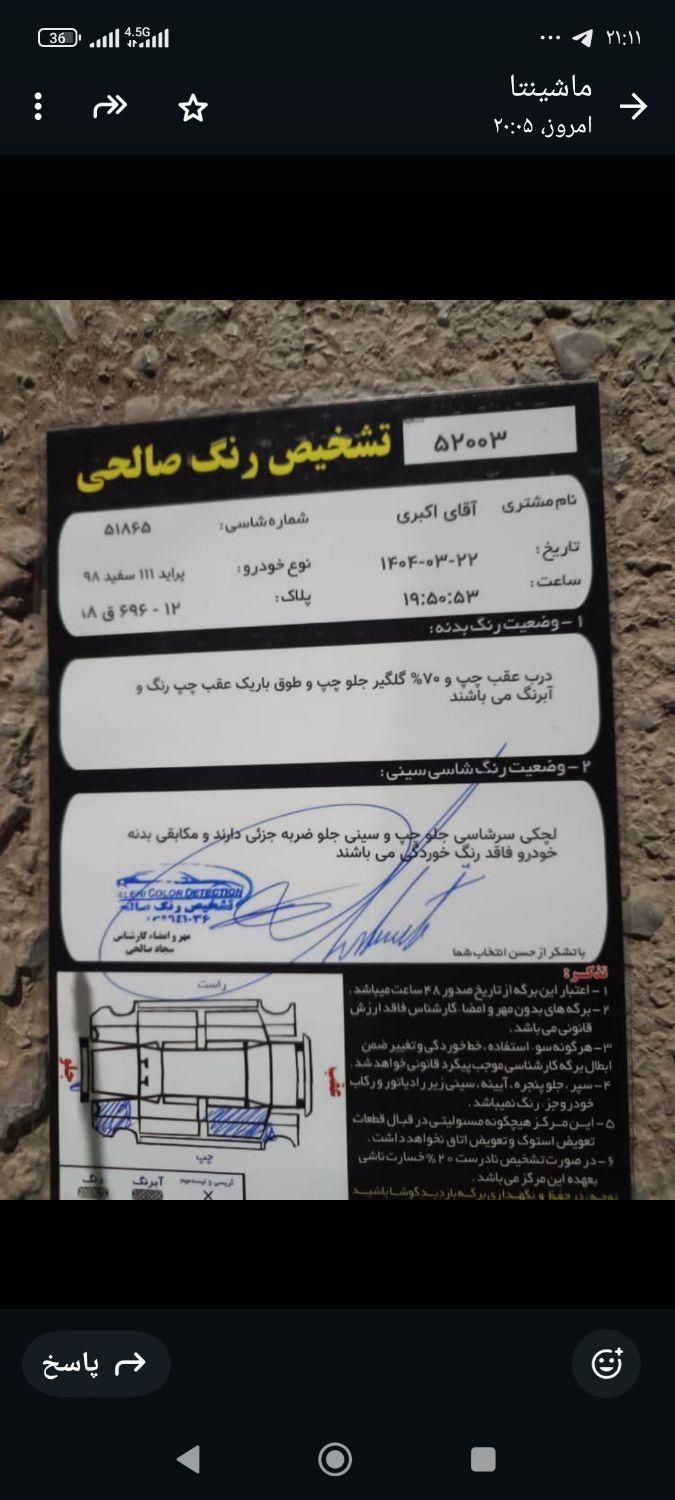 ۲۱:۱۱
4.5G
36
ماشینتا
امروز، ۲۰:۰۵
تشخیص رنگ صالحی
۵۲۰۰۳
نام مشتری آقای اکبری
شماره شاسی: ۵۱۸۶۵
تاریخ: ۱۴۰۴-۰۳-۲۲
نوع خودرو: پراید ۱۱۱ سفید ۹۸
ساعت: ۱۹:۵۰:۵۳
پلاک: ۱۲ - ۶۹۶ ق ۱۸
۱ - وضعیت رنگ بدنه:
درب عقب چپ و ۷۰% گلگیر جلو چپ و طوق باریک عقب چپ رنگ و
آبرنگ می باشند
۲ - وضعیت رنگ شاسی سینی:
لچکی سرشاسی جلو چپ و سینی جلو ضربه جزئی دارند و مکابقی بدنه
خودرو فاقد رنگ خوردگی می باشند
COLOR DETECTION
تشخیص رنگ صالحی
مهر و امضاء کارشناس
سجاد صالحی
باتشکر از حسن انتخاب شما
تذکر:
۱- اعتبار این برگه از تاریخ صدور ۴۸ ساعت میباشد.
۲- برگه های بدون مهر و امضاء کارشناس فاقد ارزش
قانونی می باشد.
۳- هرگونه سوء استفاده، خط خوردگی و تغییر ضمن
ابطال برگه کارشناسی موجب پیگرد قانونی خواهد شد.
۴- سپر، جلو پنجره، آیینه، سینی زیر رادیاتور و رکاب
خودرو جز، رنگ نمیباشد.
۵- این مرکز هیچگونه مسئولیتی در قبال قطعات
تعویض استوک و تعویض اتاق نخواهد داشت.
۶- در صورت تشخیص نادرست ۲۰% خسارت ناشی
بعهده این مرکز می باشد.
توجه: در حفظ و نگهداری برگه بازدید کوشا باشید
راست
جلو
عقب
چپ
رنگ
آبرنگ
پاسخ